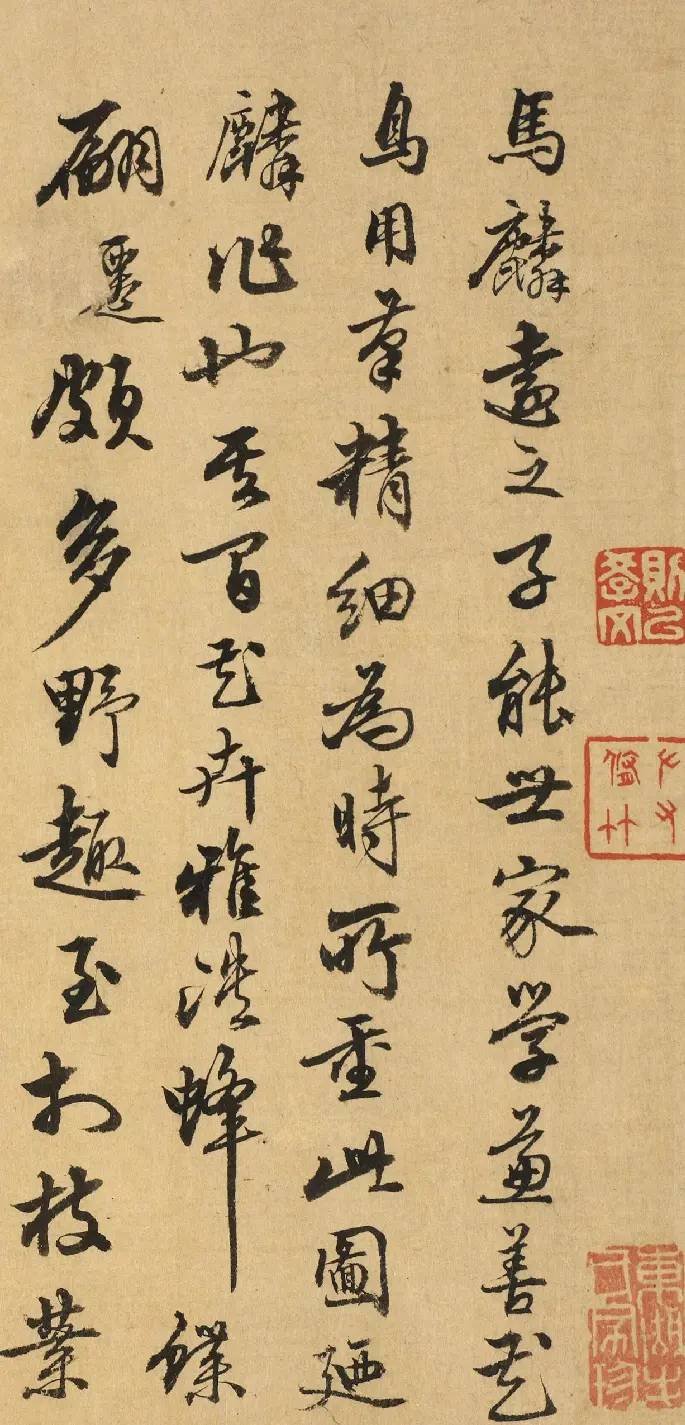 馬麟遠之子能世家學兼善花
鳥用筆精細為時所重此圖廼
麟作也其間花卉雅淡蜂蝶
翩遷頗多野趣至於枝葉